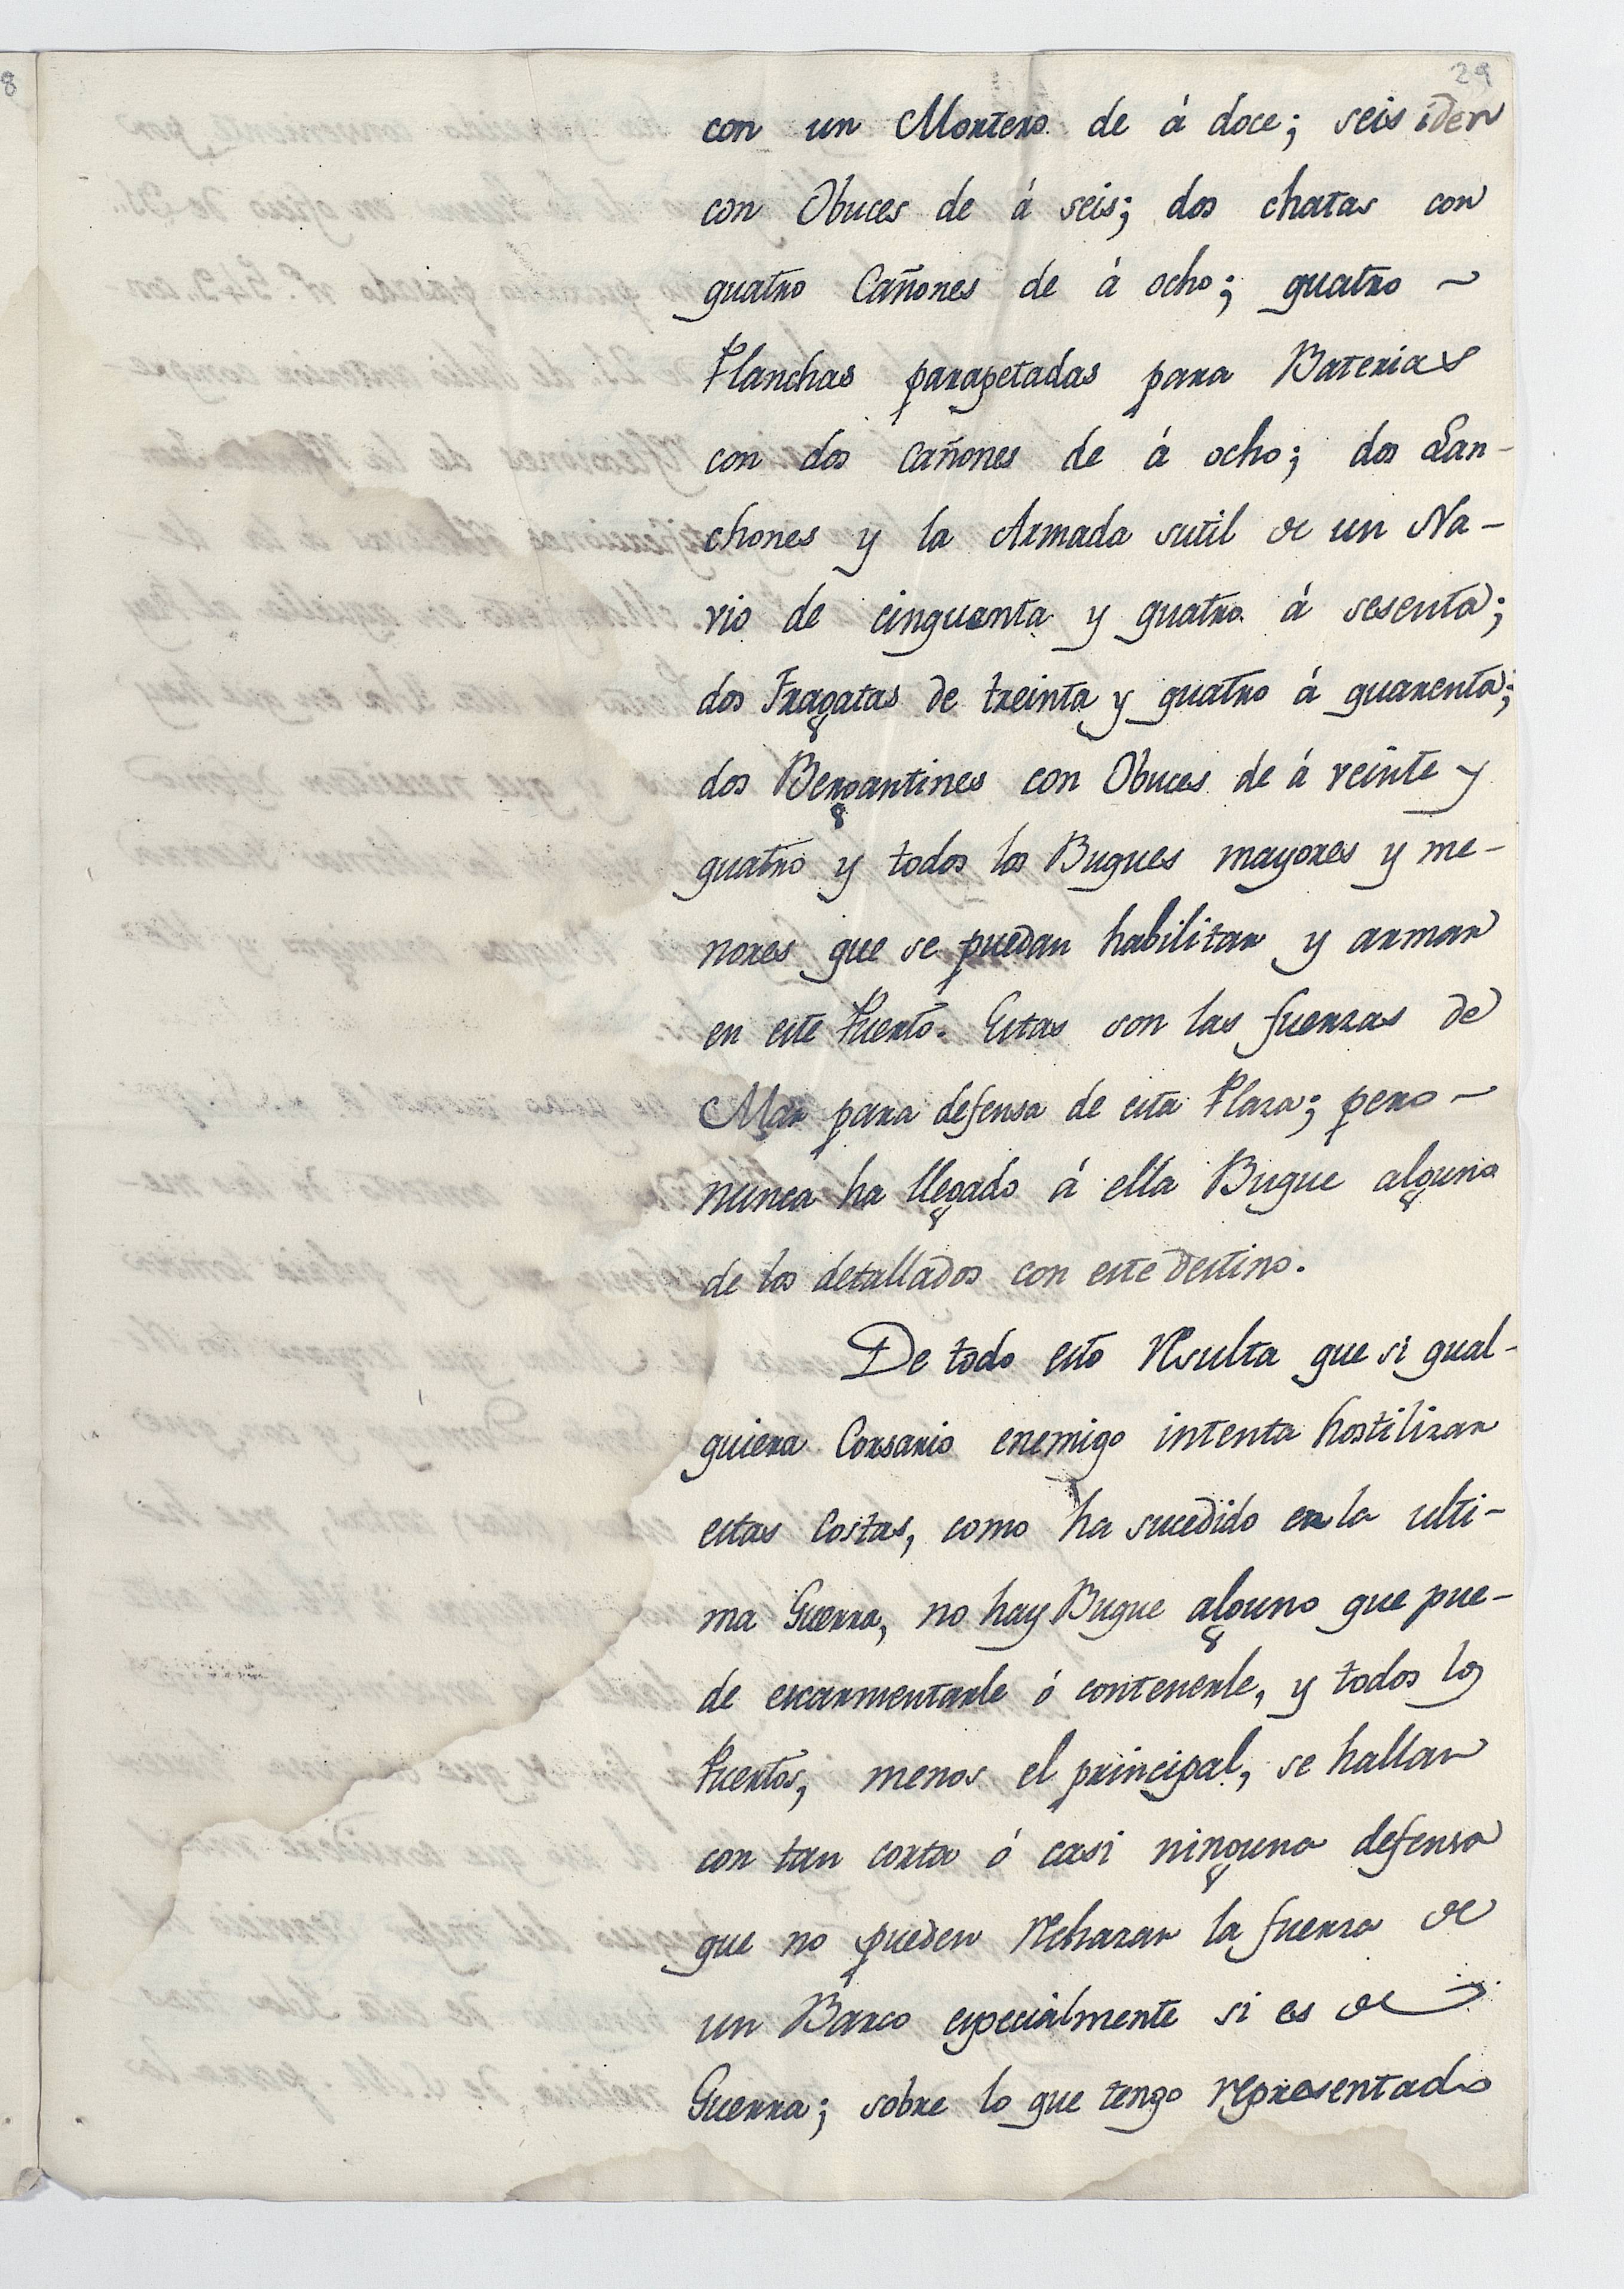 29
con un Mortero de á doce; seis iden
con Obuces de á seis; dos chatas con
quatro Cañones de á ocho; quatro ~
Planchas parapetadas para Baterias
con dos cañones de á ocho; dos Lan-
chones y la Armada sutil de un Na-
vio de cinquenta y quatro á sesenta;
dos Fragatas de treinta y quatro á quarenta;
dos Bergantines con Obuces de á veinte y
quatro y todos los Buques mayores y me-
nores que se puedan habilitar y armar
en este Puerto. Estas son las fuerzas de
Mar para defensa de esta Plaza; pero ~
nunca ha llegado á ella Buque alguno
de los detallados con este destino.
De todo esto resulta que si qual-
quiera Corsario enemigo intenta hostilizar
estas Costas, como ha sucedido en la ulti-
ma Guerra, no hay Buque alguno que pue-
de escarmentarle ó contenerle, y todos los
Puertos, menos el principal, se hallan
con tan corta ó casi ninguna defensa
que no pueden rechazar la fuerza de
un Barco especialmente si es de
Guerra; sobre lo que tengo representado